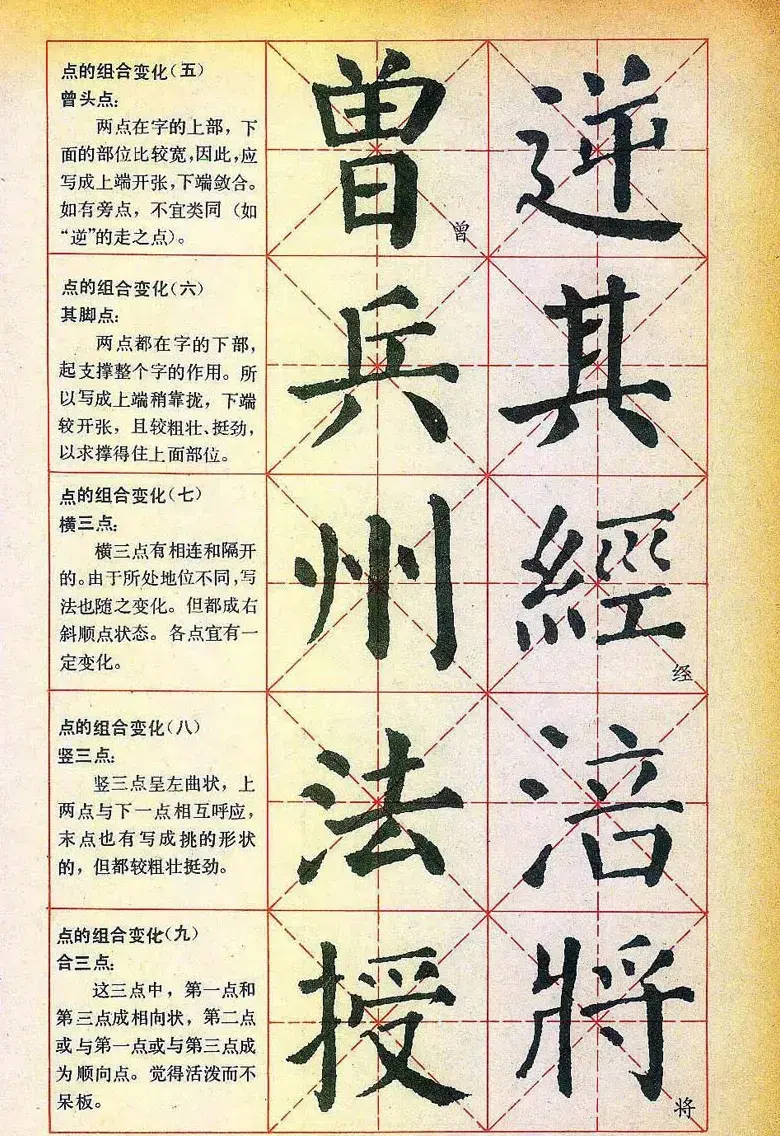 点的组合变化(五)
曾头点:
两点在字的上部，下
面的部位比较宽，因此，应
写成上端开张，下端敛合。
如有旁点，不宜类同（如
“逆”的走之点）。
曾
曾
逆
点的组合变化(六)
其脚点:
两点都在字的下部，
起支撑整个字的作用。所
以写成上端稍靠拢，下端
较开张，且较粗壮、挺劲，
以求撑得住上面部位。
兵
其
点的组合变化(七)
横三点:
横三点有相连和隔开
的。由于所处地位不同，写
法也随之变化。但都成右
斜顺点状态。各点宜有一
定变化。
州
經
经
点的组合变化(八)
竖三点:
竖三点呈左曲状，上
两点与下一点相互呼应，
末点也有写成挑的形状
的，但都较粗壮挺劲。
法
涪
点的组合变化(九)
合三点:
这三点中，第一点和
第三点成相向状，第二点
或与第一点或与第三点成
为顺向点。觉得活泼而不
呆板。
授
將
将